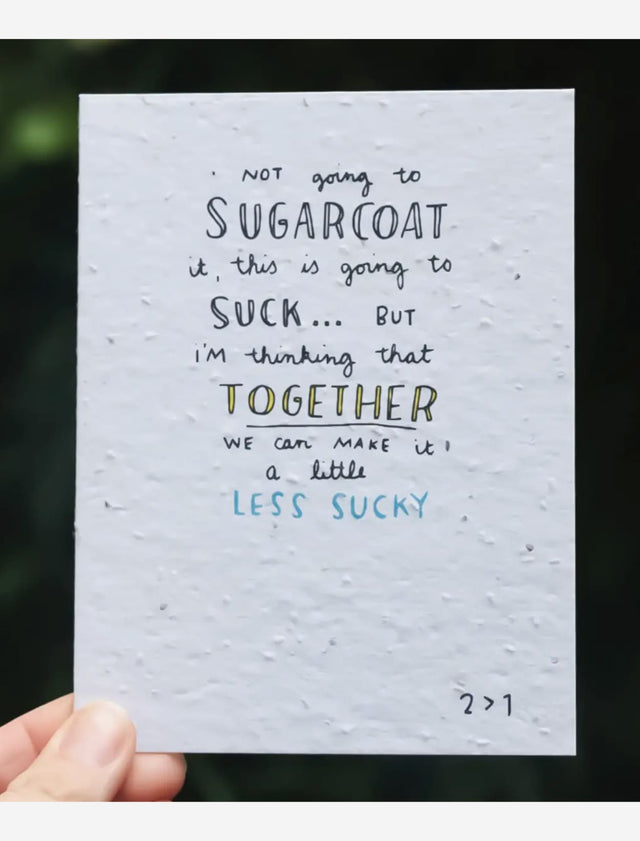 NOT going to
SUGARCOAT
it, this is going to
SUCK... BUT
i'M thinking that
TOGETHER
WE can MAKE it
a little
LESS SUCKY
2>1